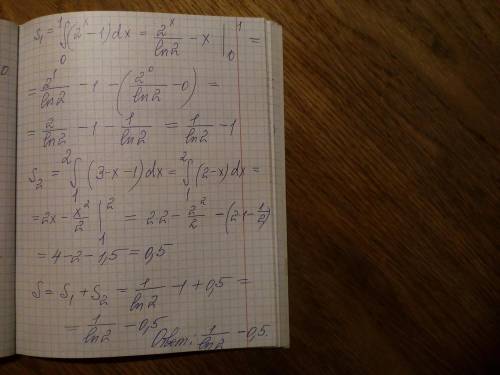 S₁ = ∫₀¹ (2ˣ - 1) dx = 2ˣ/ln2 - x |₀¹ =
= 2¹/ln2 - 1 - (2⁰/ln2 - 0) =
= 2/ln2 - 1 - 1/ln2 = 1/ln2 - 1
S₂ = ∫₁² (3-x-1) dx = ∫₁² (2-x) dx =
= 2x - x²/2 |₁² = 2·2 - 2²/2 - (2·1 - 1/2)
= 4 - 2 - 1,5 = 0,5
S = S₁ + S₂ = 1/ln2 - 1 + 0,5 =
= 1/ln2 - 0,5 Ответ: 1/ln2 - 0,5.